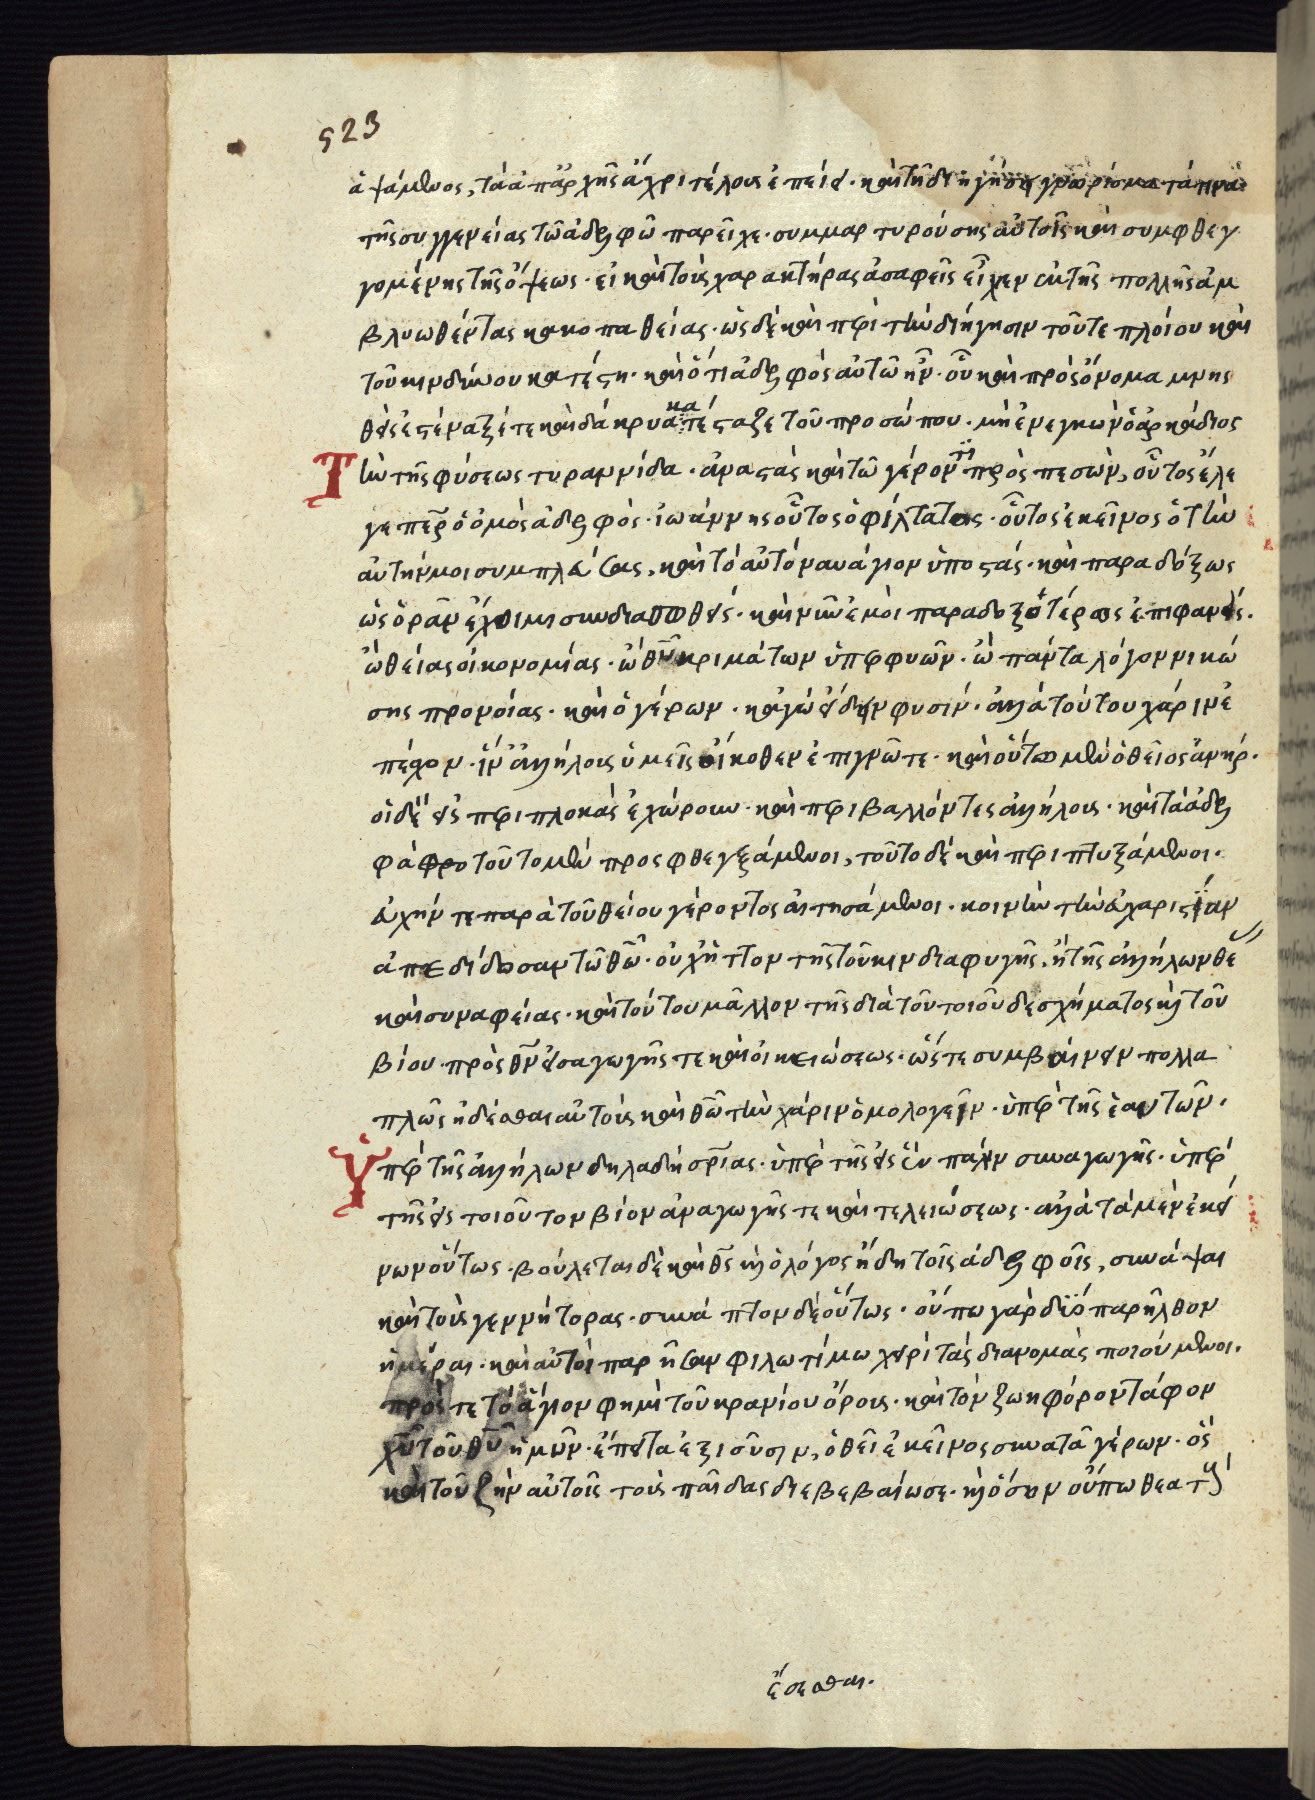 523
ἁψάμενος, τὰ ἀπαρχῆς ἄχρι τέλους ἐπείει· καὶ τῇ διηγήσει γνωρίσματα
τῆς συγγενείας τῷ ἀδελφῷ παρεῖχε· συμμαρτυρούσης αὐτοῖς καὶ συμφθεγ
γομένης τῆς ὄψεως· εἰ καὶ τοὺς χαρακτῆρας ἀσαφεῖς εἶχεν ἐκ τῆς πολλῆς ἀμ
βλυωθέντας κακοπαθείας· ὡς δὲ καὶ περὶ τὴν διήγησιν τοῦ τε πλοίου καὶ
τοῦ κινδύνου κατέστη· καὶ ὅτι ἀδελφὸς αὐτῷ ἦν· οὗ καὶ πρὸς ὄνομα μνησ
θεὶς ἐστέναξέ τε καὶ δάκρυα κατέσταξε τοῦ προσώπου· μὴ ἐνεγκὼν ὁ ἀρκάδιος
Τὴν τῆς φύσεως τυραννίδα· ἀναστὰς καὶ τῷ γέροντι προσπεσὼν, οὗτος ἔλε
γε πάτερ ὁ ἐμὸς ἀδελφός· ἰωάννης οὗτος ὁ φίλτατος· οὗτος ἐκεῖνος ὁ τὴν
αὐτήν μοι συμπλεύσας, καὶ τὸ αὐτὸ ναυάγιον ὑποστάς· καὶ παραδόξως
ὡς ὁρᾶν ἔχοιμι συνδιασωθείς· καὶ νῦν ἐμοὶ παραδοξοτέρως ἐπιφανείς·
ὢ θείας οἰκονομίας· ὢ θεοῦ κριμάτων ὑπερφυῶν· ὢ πάντα λόγον νικώ
σης προνοίας· καὶ ὁ γέρων· κἀγὼ εἴδειν φησίν· ἀλλὰ τούτου χάριν ἐ
πέσχον· ἵν' ἀλλήλους ὑμεῖς οἴκοθεν ἐπιγνῶτε· καὶ οὕτω μὲν ὁ θεῖος ἀνήρ·
οἱ δὲ εἰς περιπλοκὰς ἐχώρουν· καὶ περιβαλλόντες ἀλλήλους· καὶ τὰ ἀδελ
φὰ τοῦτο μὲν προσφθεγξάμενοι, τοῦτο δὲ καὶ περιπτυξάμενοι·
εὐχήν τε παρὰ τοῦ θείου γέροντος αἰτησάμενοι· κοινὴν τὴν εὐχαριστίαν
ἀπεδίδοσαν τῷ θεῷ· οὐχ ἧττον τῆς τοῦ κινδιαφυγῆς, ἢ τῆς ἀλλήλων θέ
καὶ συναφείας· καὶ τούτου μᾶλλον τῆς διὰ τοῦ τοιοῦδε σχήματος καὶ τοῦ
βίου πρὸς θεὸν εἰσαγωγῆς τε καὶ οἰκειώσεως· ὥστε συμβαίνειν πολλα
πλῶς ἥδεσθαι αὐτοὺς καὶ θεῷ τὴν χάριν ὁμολογεῖν· ὑπὲρ τῆς ἑαυτῶν·
Ὑπὲρ τῆς ἀλλήλων δηλαδὴ σωτηρίας· ὑπὲρ τῆς εἰς ἓν πάλιν συναγωγῆς· ὑπὲρ
τῆς εἰς τοιοῦτον βίον ἀναγωγῆς τε καὶ τελειώσεως· ἀλλὰ τὰ μὲν ἐκεί
νων οὕτως· βούλεται δὲ καὶ θεὸς καὶ ὁ λόγος ἤδη τοῖς ἀδελφοῖς, συνάψαι
καὶ τοὺς γεννήτορας· συνάπτον δὲ οὕτως· οὔπω γὰρ δύο παρῆλθον
ἡμέραι· καὶ αὐτοὶ παρῆσαν φιλοτίμω χειρὶ τὰς διανομὰς ποιούμενοι·
πρός τε τὸ ἅγιον φημὶ τοῦ κρανίου ὄρους· καὶ τὸν ζωηφόρον τάφον
χριστοῦ τοῦ θεοῦ ἡμῶν· ἔπειτα ἐξιοῦσιν, ὀφθεὶς ἐκεῖνος συναντᾷ γέρων· ὃς
καὶ τοῦ ζῆν αὐτοῖς τοὺς παῖδας διεβεβαίωσε· καὶ ὅσον οὔπω θεατοὺς
ἔσεσθαι·